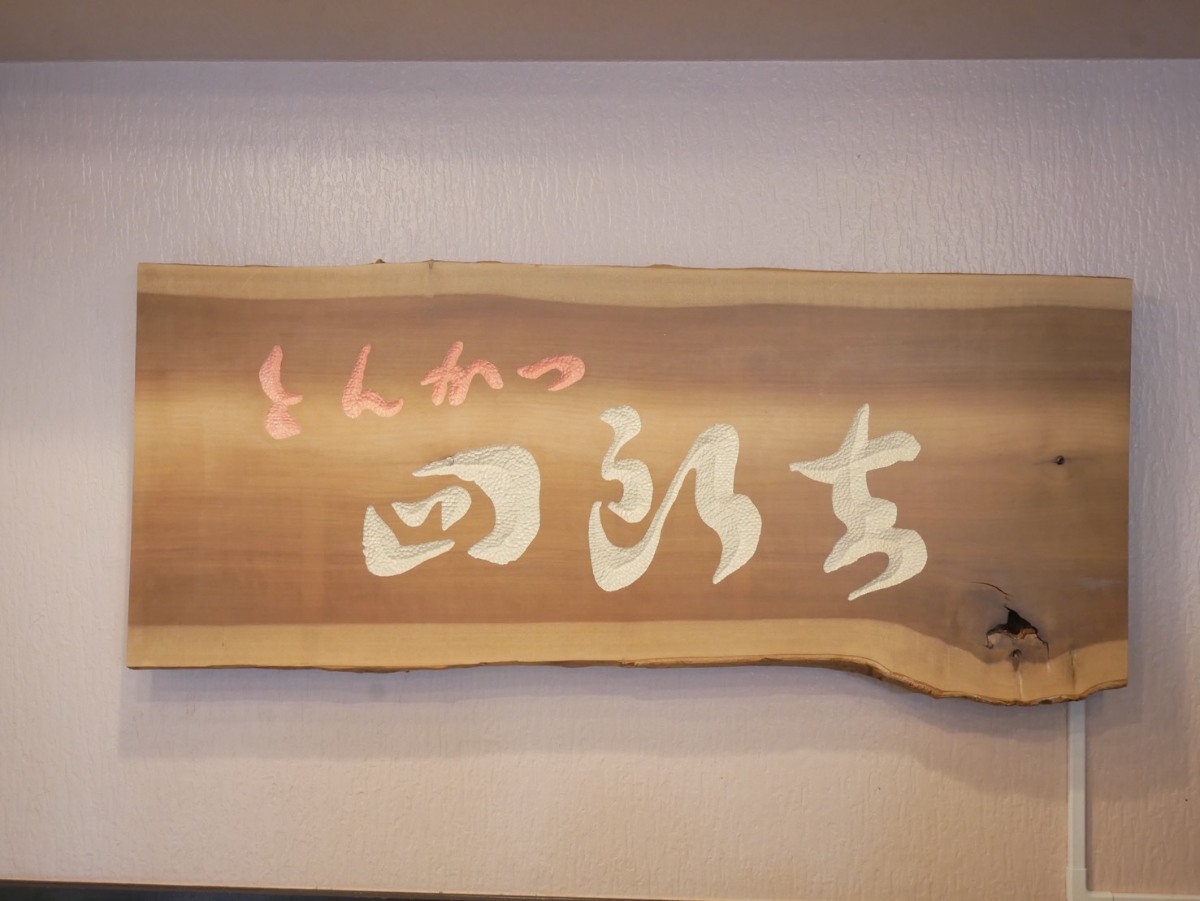 とんかつ
四郎吉